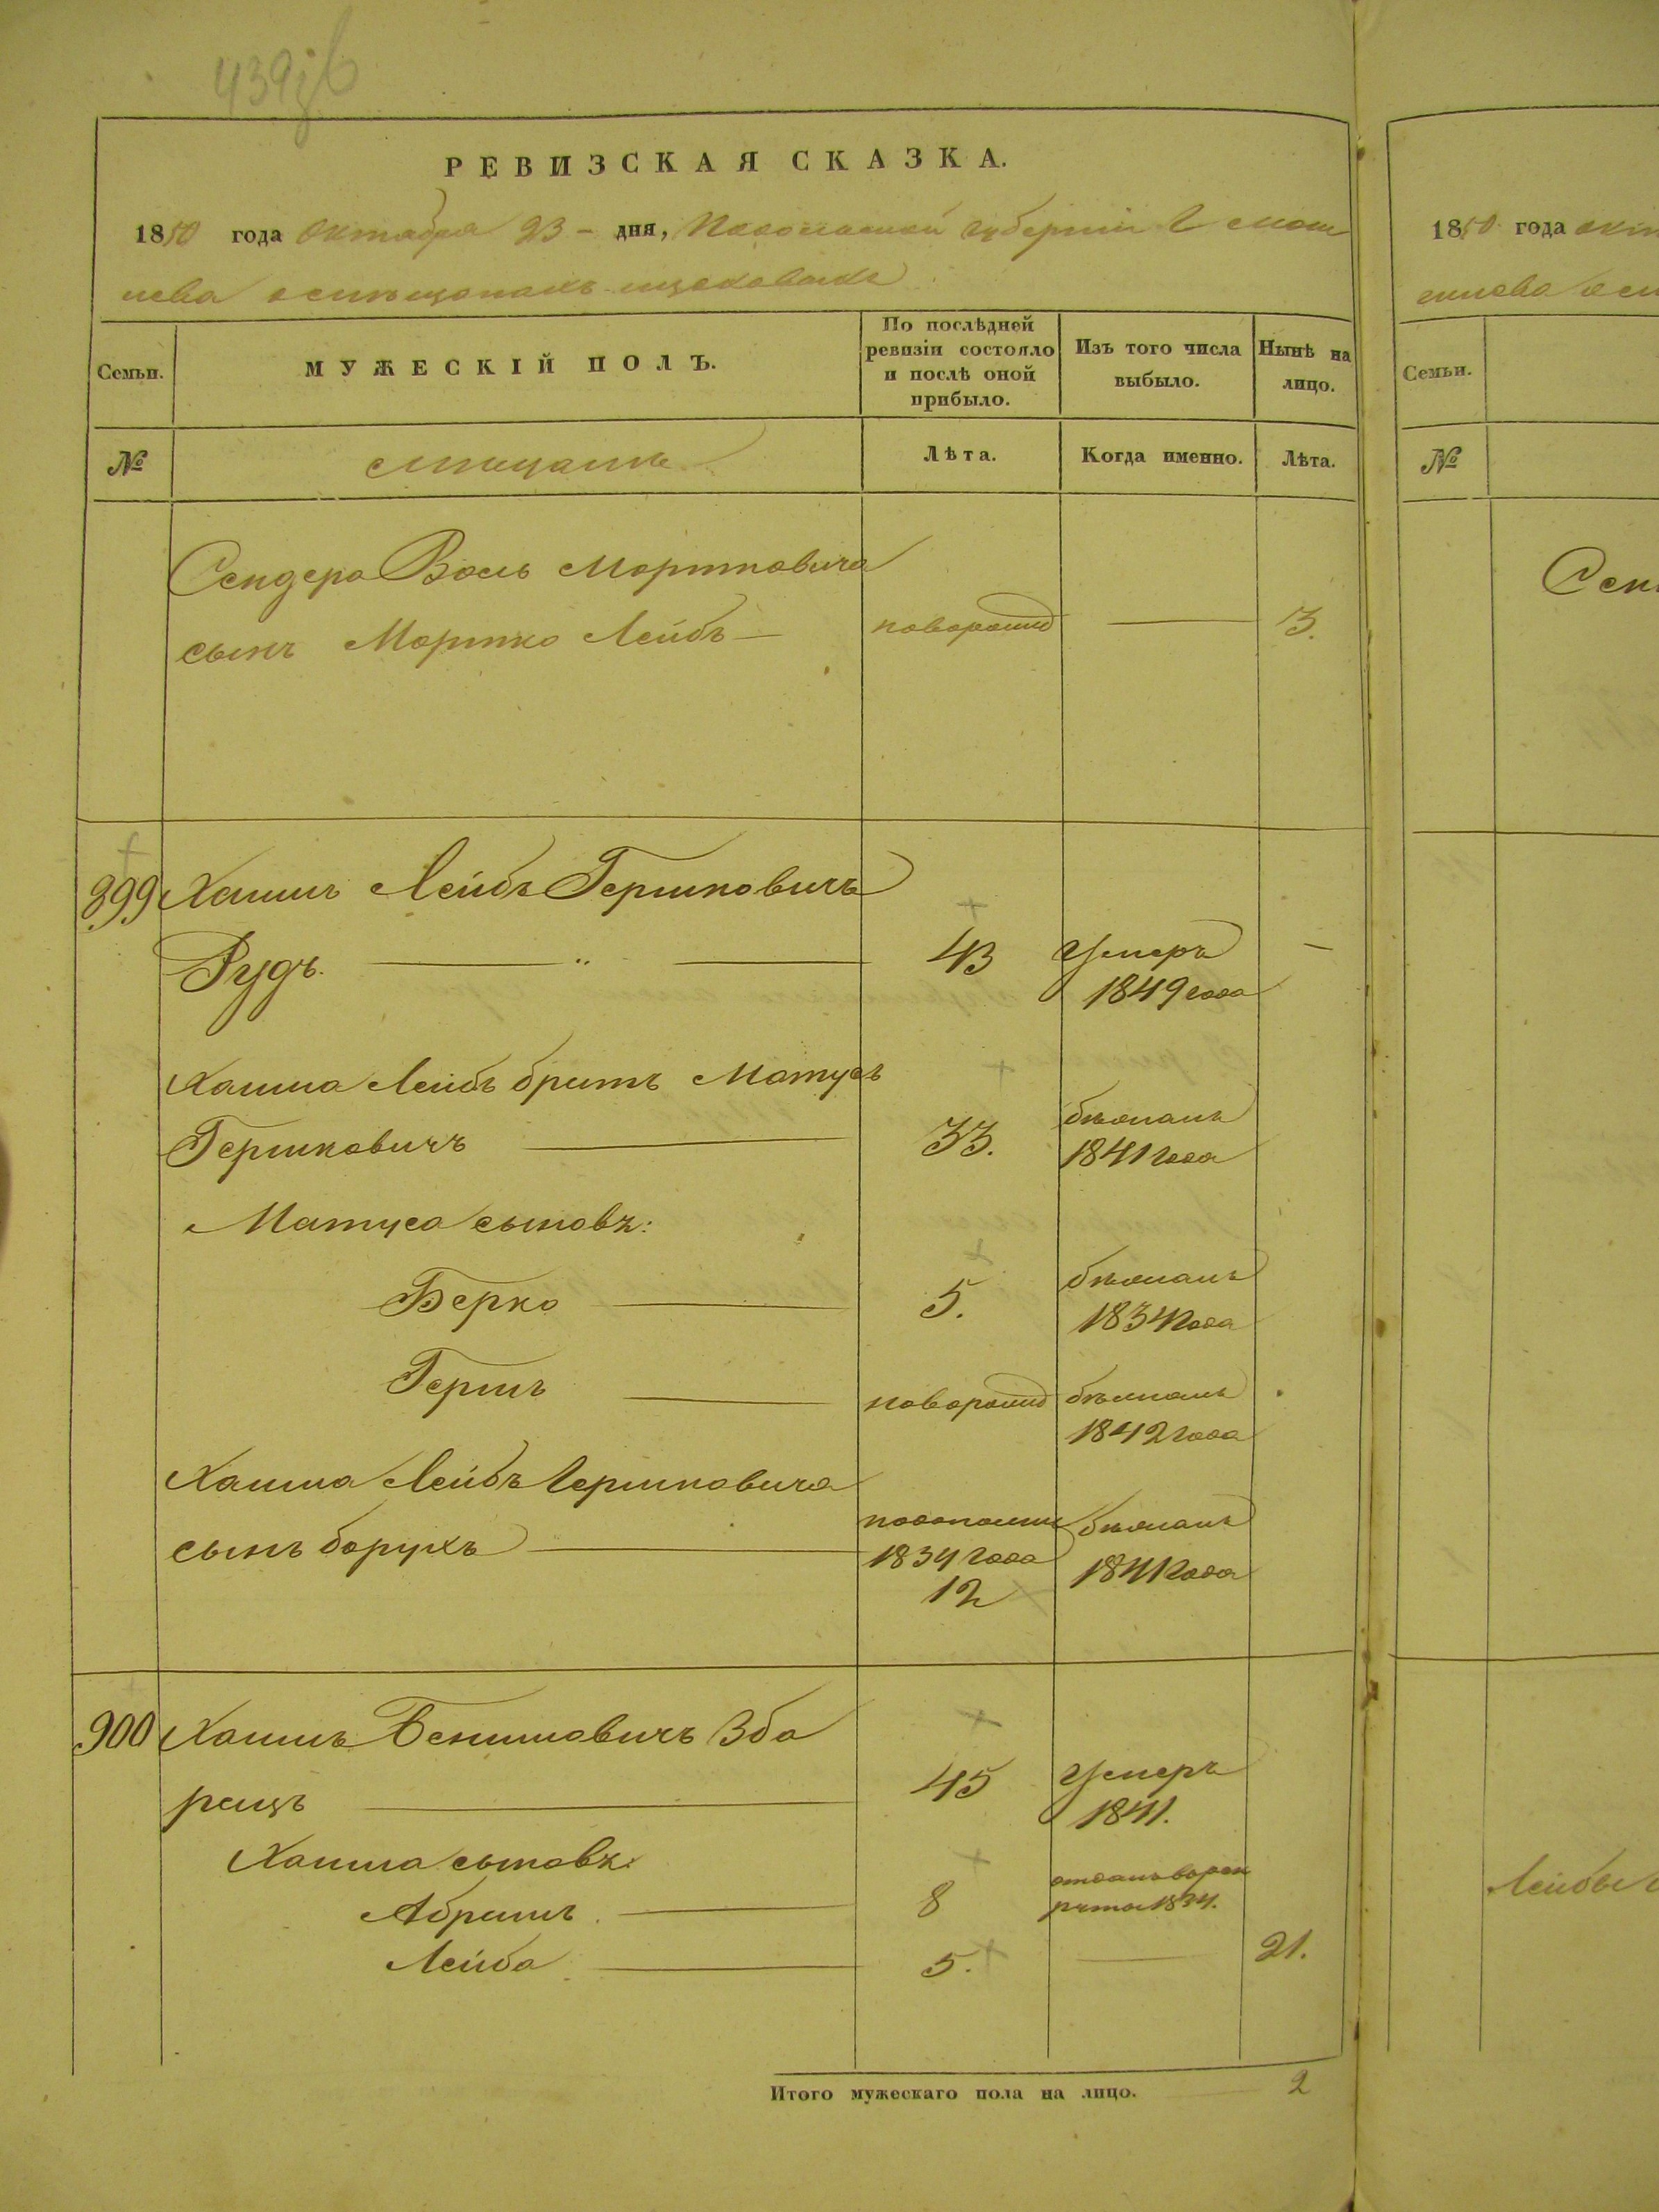 РЕВИЗСКАЯ СКАЗКА.
1850 года Октября 23 - дня, Подольской губернiи г Моги
лева о мѣщанахъ
Семьи.
МУЖЕСКIЙ ПОЛЪ.
По послѣдней ревизiи состояло и послѣ оной прибыло.
Изъ того числа выбыло.
Нынѣ на лицо.
№
мѣщане
Лѣта.
Когда именно.
Лѣта.
Сендера Воль Мортковича
сынъ Мортко Лейбъ — новорожд — 13.
899 Хаимъ Лейбъ Гершковичъ
Рудъ. — 43 Умеръ —
1849 года
Хаима Лейбъ братъ Матусъ
Гершковичъ — 33. бѣжалъ
1841 года
Матуса сыновья:
Берко — 5. бѣжалъ
1834 года
Гершъ — новорожд бѣжалъ
1842 года
Хаима Лейбъ Гершковича
сынъ борухъ — бѣжалъ
1834 года 1841 года
12
900 Хаимъ Беніиовичъ Зба
рецъ — 45 Умеръ
1841.
Хаима сыновья:
Абрамъ — 8 отданъ в рек
руты 1834.
Лейба — 5. — 21.
Итого мужескаго пола на лицо. 2
1850 года окт
Семьи.
№
Сен
Лейбы